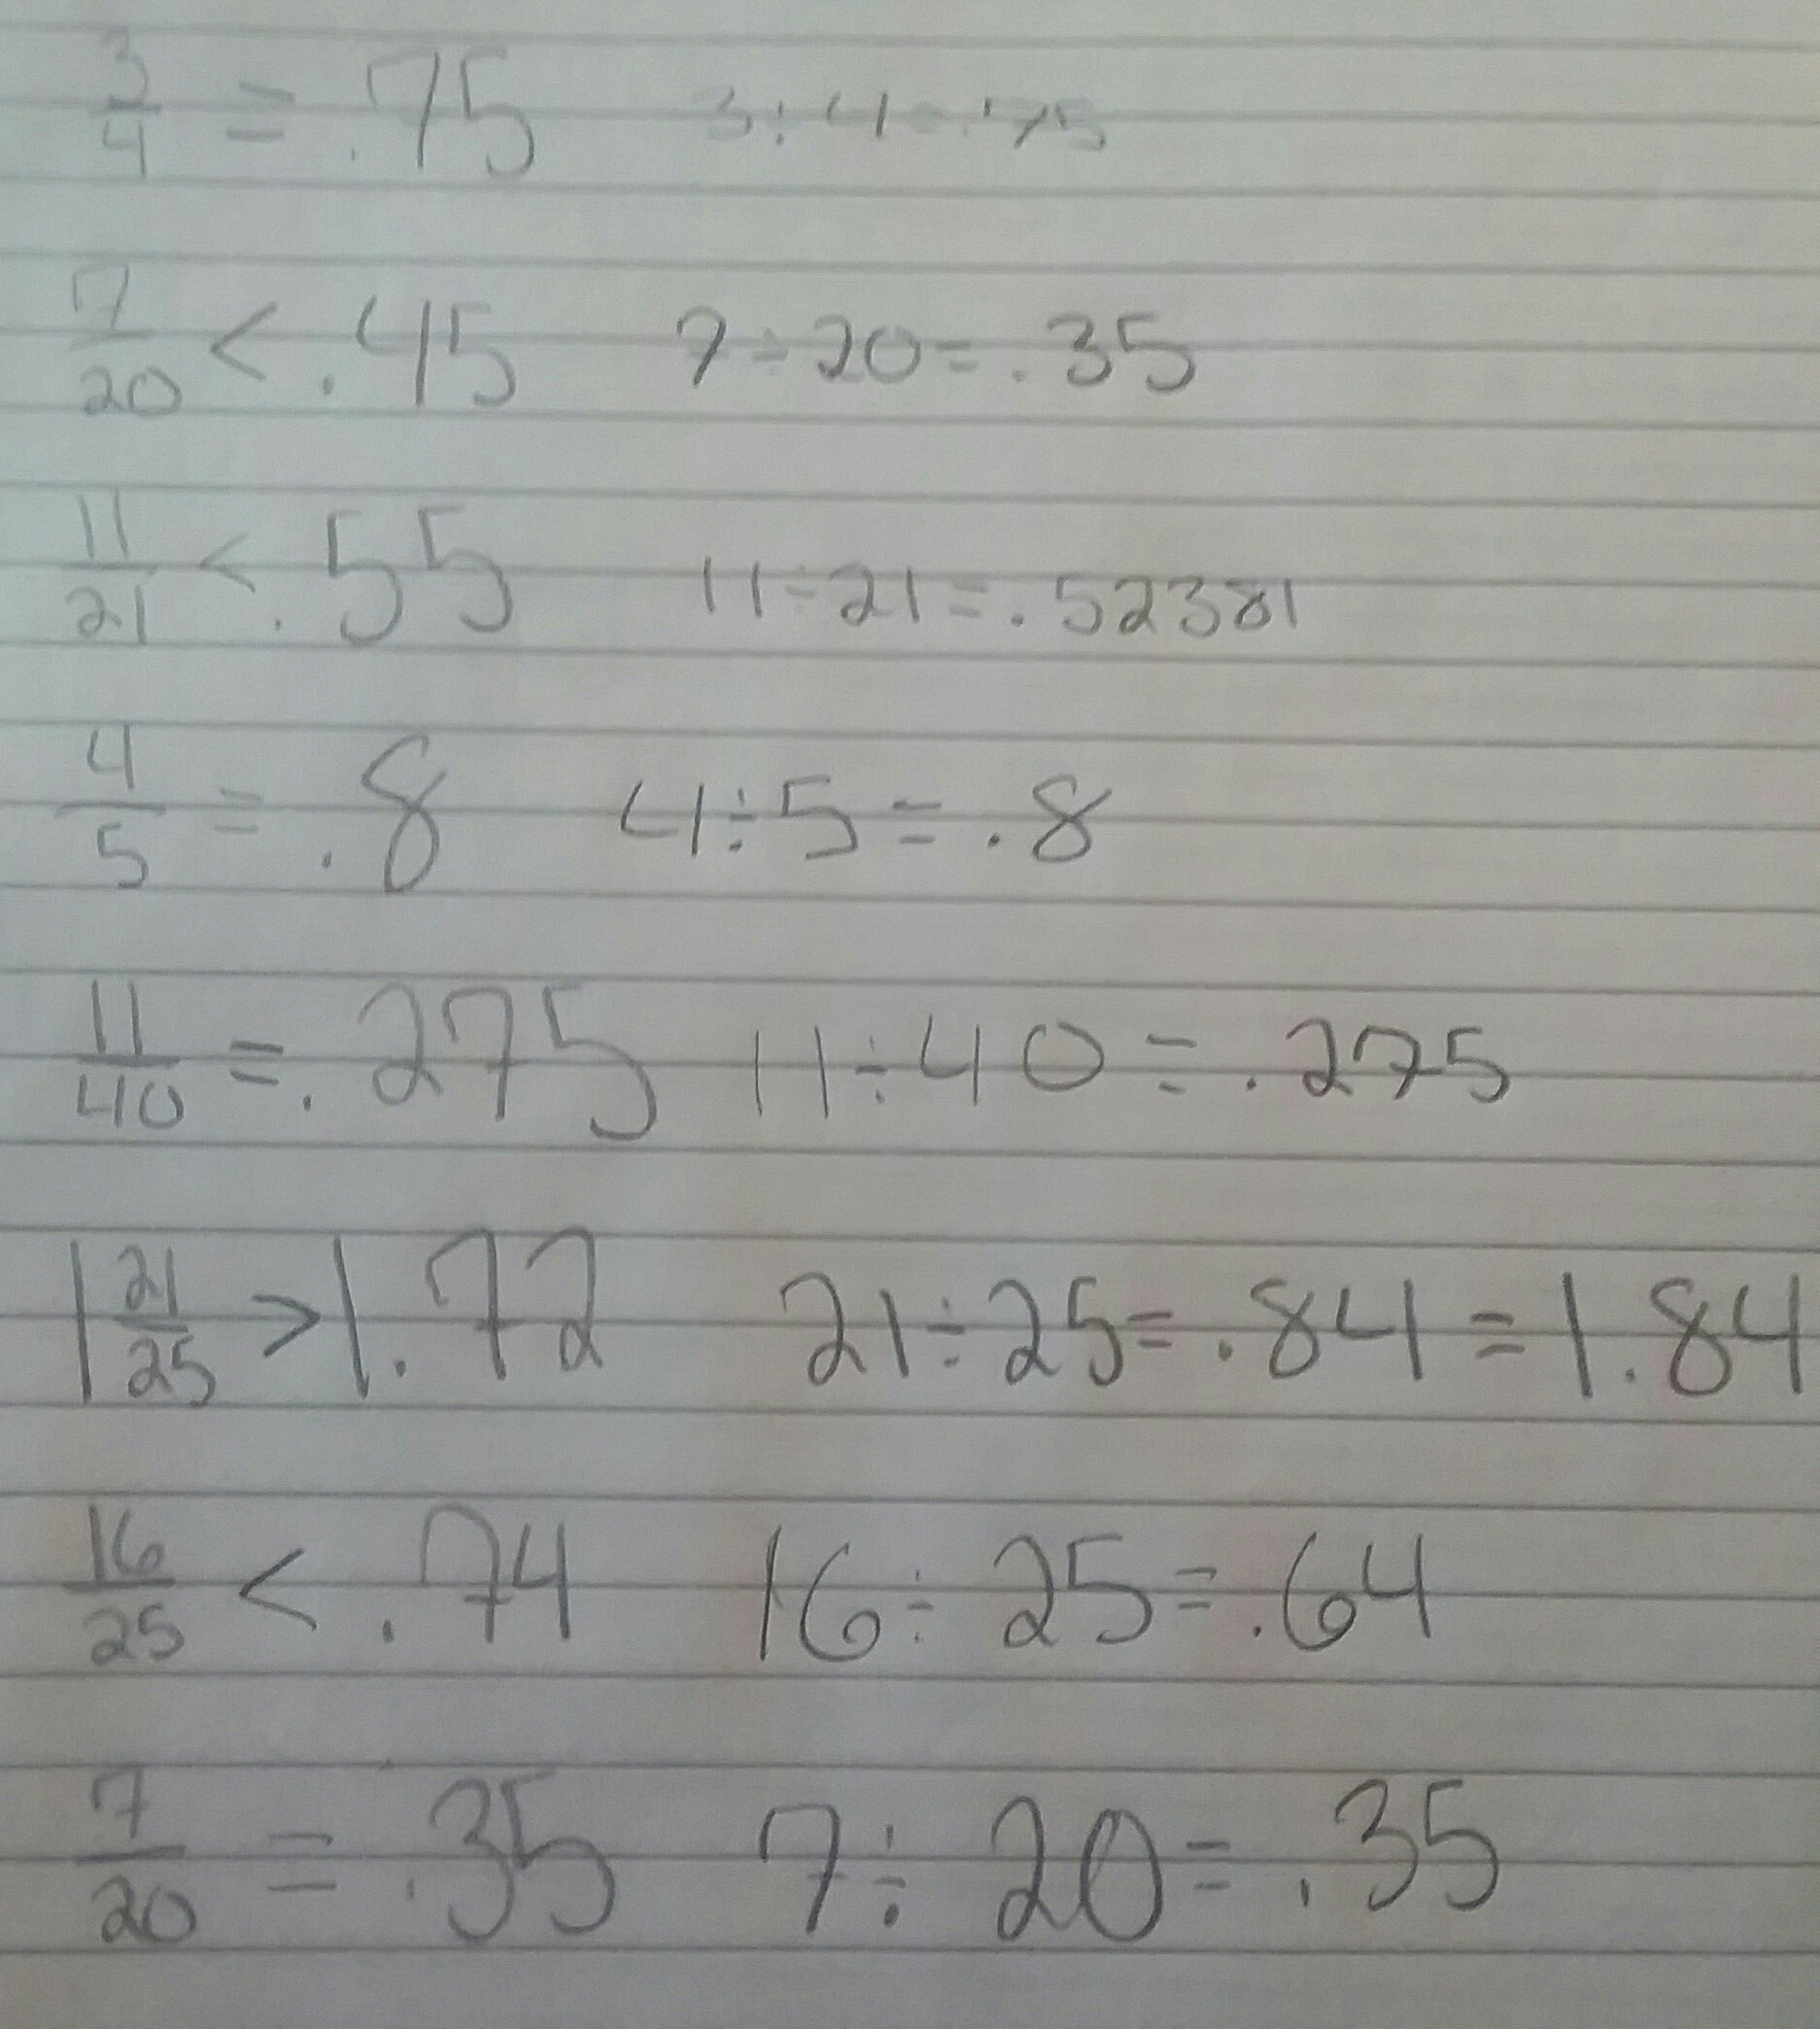 3/4 = .75 3÷4=.75
7/20 < .45 7÷20=.35
11/21 < .55 11÷21=.52381
4/5 = .8 4÷5=.8
11/40 = .275 11÷40=.275
1 21/25 > 1.72 21÷25=.84=1.84
16/25 < .74 16÷25=.64
7/20 = .35 7÷20=.35